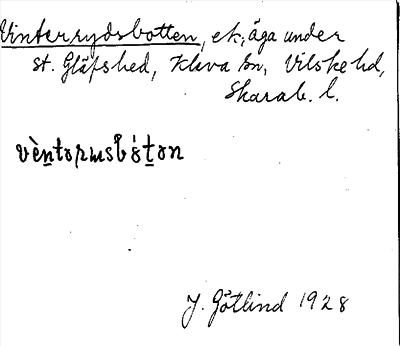 Vinterrydsbotten, ek., äga under
st. Gläfshed, Kleva sn, Vilske hd,
Skarab. l.
J. Götlind 1928